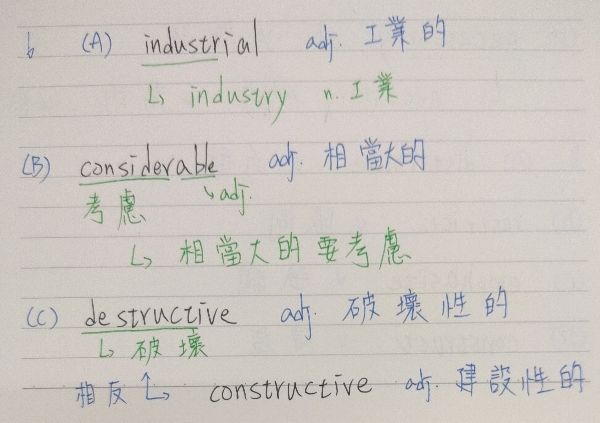 6 (A) industrial adj. 工業的
↳ industry n. 工業
(B) considerable adj. 相當大的
考慮 ↳ adj.
↳ 相當大的要考慮
(C) destructive adj. 破壞性的
↳ 破壞
相反 ↳ constructive adj. 建設性的